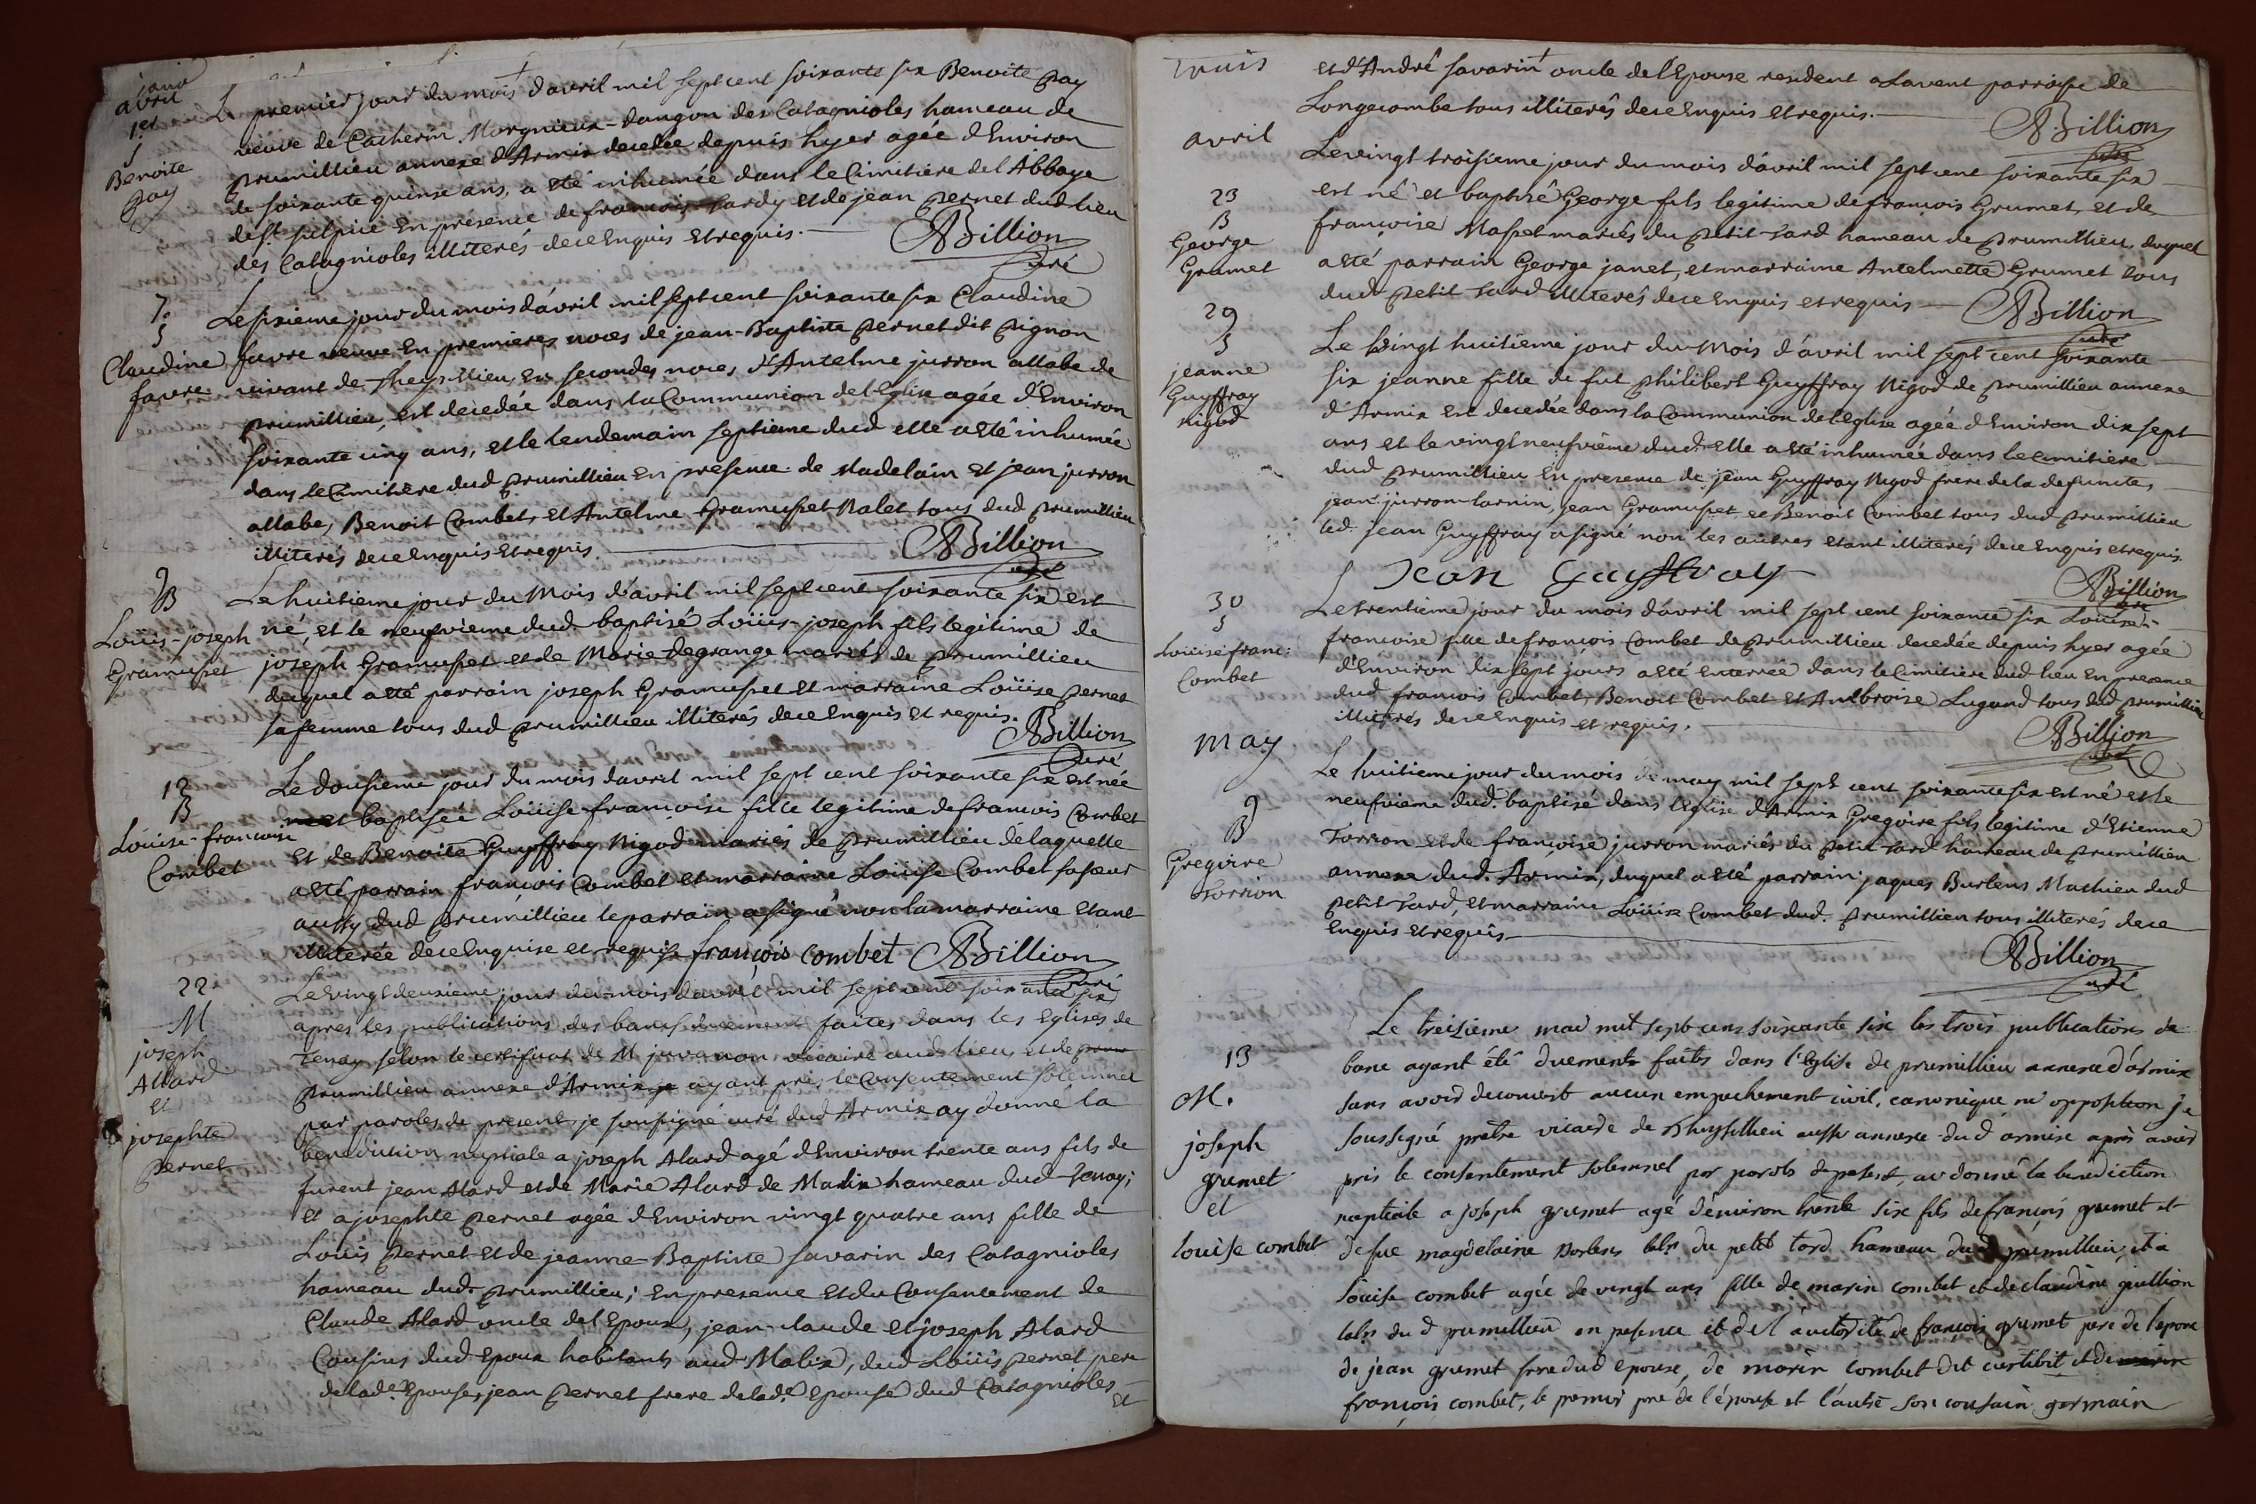 avril
1er
S
Benoite
Pay
Le premier jour du mois d'avril mil sept cent soixante six Benoite Pay
veuve de Catherin Morgnieux-dangon des Catagnioles hameau de
Prumillieu annexe d'Armix decedée depuis hyer agée d'Environ
de soixante quinze ans, a eté inhumée dans le Cimitiere de l'Abbaye
de St. sulpice En presence de francois Tardy et de jean Pernet dud lieu
des Catagnioles illiterés de ce Enquis Et requis.
Billion
Curé
7.
S
Claudine
favre
Le sixieme jour du mois d'avril mil sept cent soixante six Claudine
favre veuve En premieres noces de jean-Baptiste Pernet dit Pignon
vivant de Theysillieu, En secondes noces d'Antelme jurron allabe de
Prumillieu, est decedée dans la Communion de l'Eglise agée d'Environ
soixante cinq ans, et le lendemain septieme dud elle a eté inhumée
dans le Cimitiere dud Prumillieu En presence de Madelain Et jean jurron
allabe, Benoit Combet, et Antelme Gramuset Nalet tous dud Prumillieu
illiterés de ce Enquis Et requis.
Billion
Curé
9
B
Loüis-joseph
Gramuset
Le huitieme jour du Mois d'avril mil sept cent soixante six est
né, et le neufvieme dud baptisé Loüis-joseph fils legitime de
joseph Gramuset et de Marie Degrange mariés de Prumillieu
duquel a eté parrain joseph Gramuset et marraine Loüise Pernet
sa femme tous dud Prumillieu illiterés de ce Enquis Et requis.
Billion
Curé
12
B
Loüise-francoise
Combet
Le dousieme jour du mois d'avril mil sept cent soixante six est née
et baptisée Loüise francoise fille legitime de francois Combet
Et de Benoite Guyffray Nigod mariés de Prumillieu de laquelle
a eté parrain françois Combet et marraine Loüise Combet sa soeur
aussy dud Prumillieu le parrain a signé non la marraine Etant
illiterée de ce Enquise et requise françois combet Billion
Curé
22
M
joseph
Alard
et
josephte
Pernet
Le vingt deuxieme jour du mois d'avril mil sept cent soixante six
apres les publications des bans duement faites dans les Eglises de
Tenay selon le certificat de M juvanon vicaire aud lieu, et de
Prumillieu annexe d'Armix ayant pris le Consentement solemnel
par paroles de present, je soussigné curé dud Armix ay donné la
benediction nuptiale a joseph Alard agé d'Environ trente ans fils de
furent jean Alard et de Marie Alard de Malix hameau dud Tenay;
Et a josephte Pernet agée d'Environ vingt quatre ans fille de
Loüis Pernet et de jeanne-Baptiste Savarin des Catagnioles
hameau dud Prumillieu; En presence Et du Consentement de
Claude Alard oncle de l'Epoux, jean-claude et joseph Alard
Cousins dud Epoux habitants aud Malix, dud Loüis Pernet pere
de lade. Epouse, jean Pernet frere de lade. Epouse dud Catagnioles
Et
et d'André savarin oncle de l'Epouse resident a Lavent parroisse de
Longecombe tous illiterés de ce Enquis Et requis.
Billion
Curé
avril
23
B
George
Grumet
Le vingt troisieme jour du mois d'avril mil sept cent soixante six
est né et baptisé George fils legitime de francois Grumet, et de
françoise Maspet mariés du Petit-Tard hameau de Prumillieu, duquel
a eté parrain George janet, et marraine Antelmette Grumet tous
dud Petit Tard illiterés de ce Enquis et requis
Billion
Curé
29
S
jeanne
Guyffray
Nigod
Le vingt huitieme jour du Mois d'avril mil sept cent soixante
six jeanne fille de fut Philibert Guyffray Nigod de Prumillieu annexe
d'Armix est decedée dans la Communion de l'Eglise agée d'Environ dix sept
ans et le vingt neufvieme dud Elle a eté inhumée dans le Cimitiere
dud Prumillieu En presence de jean Guyffray Nigod frere de la defuncte,
jean jurron-tarnin, jean Gramuset et Benoit Combet tous dud Prumillieu
led. jean Guyffray a signé non les autres etant illiterés de ce Enquis et requis.
Jean Guyffray
Billion
Curé
30
S
Loüise franc:
Combet
Le trentieme jour du mois d'avril mil sept cent soixante six Loüise
francoise fille de françois Combet de Prumillieu decedée depuis hyer agée
d'Environ dix sept jours a eté enterrée dans le Cimitiere dud lieu En presence
dud francois Combet, Benoit Combet et Ambroise Lugand tous dud Prumillieu
illiterés de ce Enquis et requis.
Billion
Curé
may
9
B
Gregoire
Torrion
Le huitieme jour du mois de may mil sept cent soixante six est né et le
neufvieme dud. baptisé dans l'Eglise d'Armix Gregoire fils legitime d'Etienne
Torrion et de françoise jurron mariés du Petit Tard hameau de Prumillieu
annexe dud. Armix, duquel a eté parrain jaques Burlens Mathieu dud
Petit Tard, et marraine Loüise Combet dud. Prumillieu tous illiterés de ce
Enquis et requis
Billion
Curé
13
M.
joseph
grumet
et
louise combet
Le treizieme mai mil sept cens soixante six les trois publications de
banc ayant été duement faites dans l'eglise de prumillieu annexe d'armix
sans avoir decouvert aucun empechement civil, canonique ni opposition je
soussigné prêtre vicaire de theysillieu aussi annexe dud armix après avoir
pris le consentement solemnel par parols de present, ai donné la benediction
nuptiale a joseph grumet agé d'environ trente six fils de françois grumet et
de fue magdelaine du petit tard hameau dud prumillieu; et a
louise combet agée de vingt ans fille de marin combet et de claudine guillion
dud prumillieu en presence et de l'autorité de françois grumet pere de l'epoux
de jean grumet frere dud epoux, de marin combet dit et de
françois combet, le premier pere de l'épouse et l'autre son cousin germain